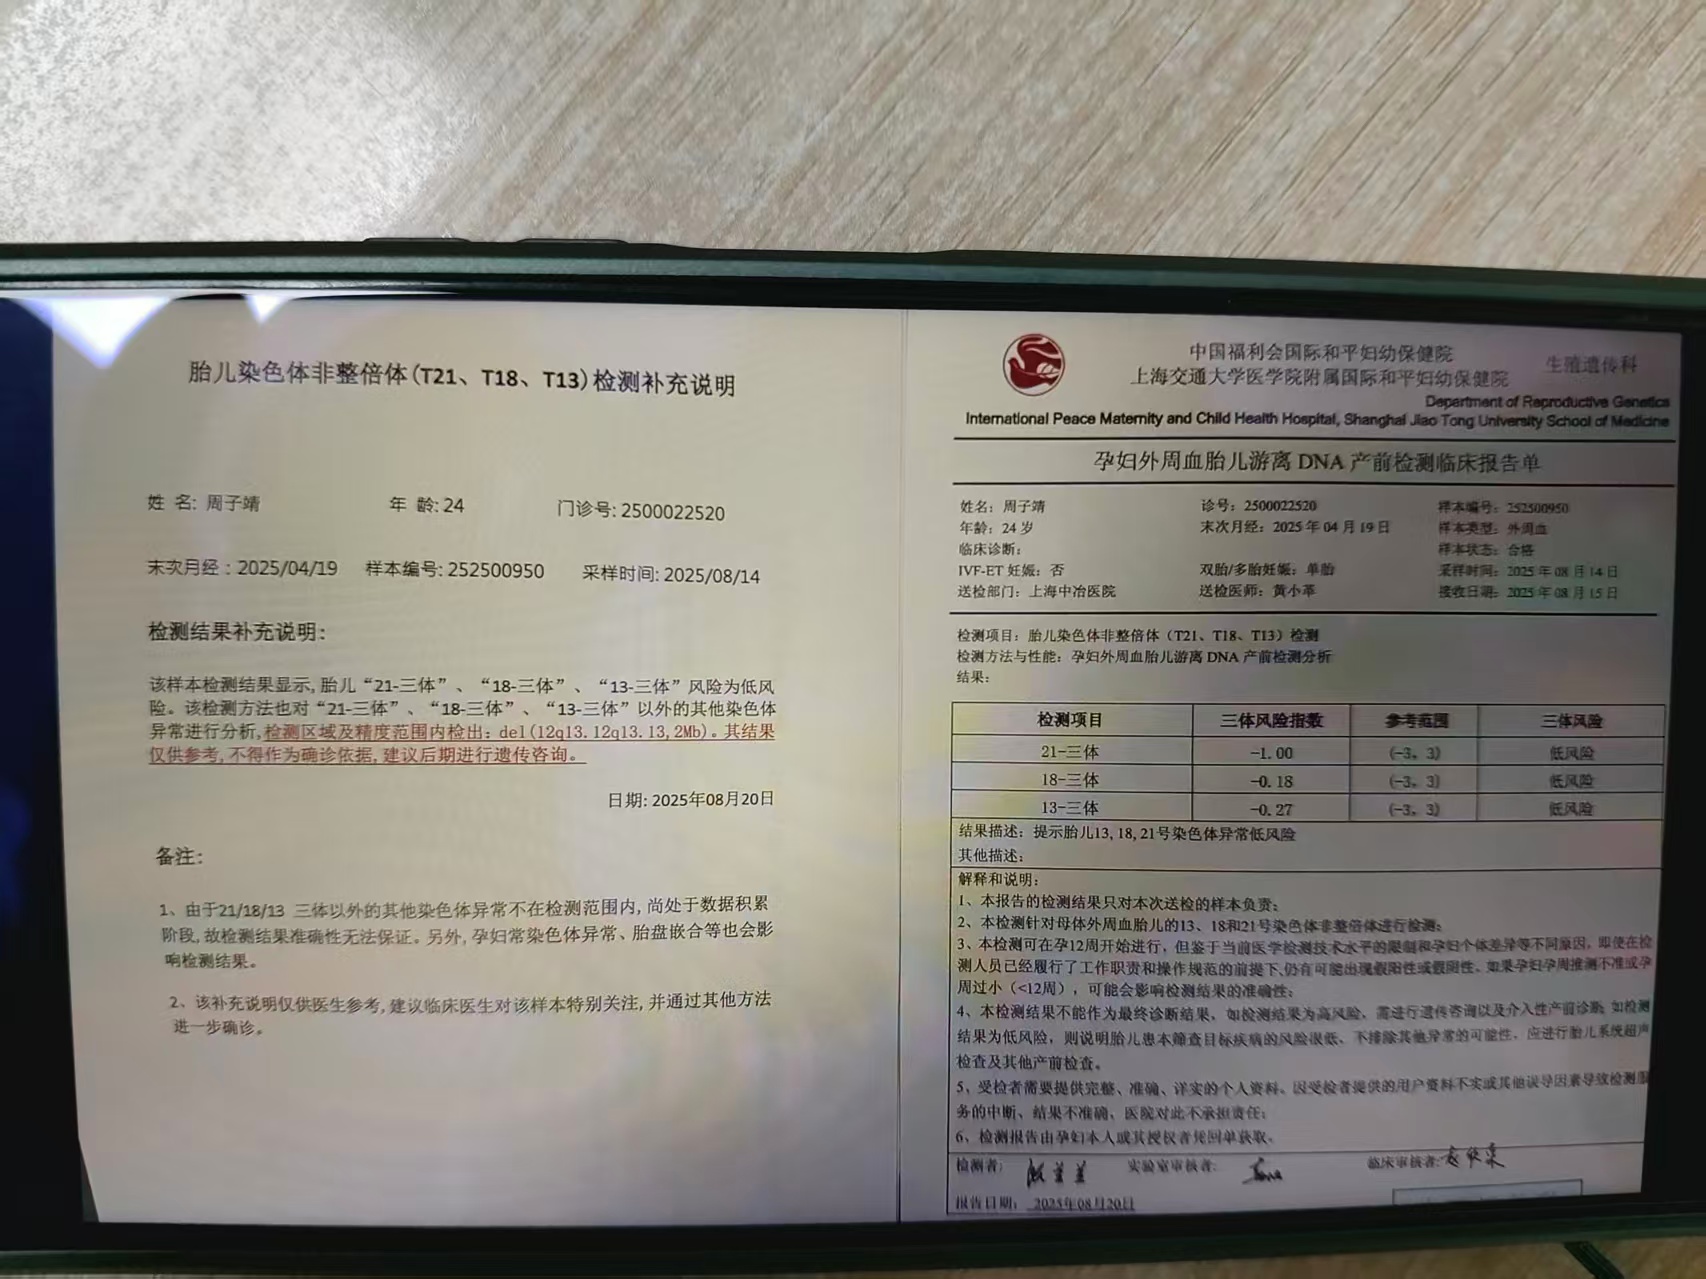 胎儿染色体非整倍体(T21、T18、T13)检测补充说明
姓 名: 周子靖 年 龄: 24 门诊号: 2500022520
末次月经：2025/04/19 样本编号: 252500950 采样时间: 2025/08/14
检测结果补充说明：
该样本检测结果显示, 胎儿“21-三体”、“18-三体”、“13-三体”风险为低风
险。该检测方法也对“21-三体”、“18-三体”、“13-三体”以外的其他染色体
异常进行分析, 检测区域及精度范围内检出：del(12q13.12q13.13,2Mb)。其结果
仅供参考, 不得作为确诊依据, 建议后期进行遗传咨询。
日期: 2025年08月20日
备注：
1、由于21/18/13 三体以外的其他染色体异常不在检测范围内, 尚处于数据积累
阶段, 故检测结果准确性无法保证。另外, 孕妇常染色体异常、胎盘嵌合等也会影
响检测结果。
2、该补充说明仅供医生参考, 建议临床医生对该样本特别关注, 并通过其他方法
进一步确诊。
中国福利会国际和平妇幼保健院
生殖遗传科
上海交通大学医学院附属国际和平妇幼保健院
Department of Reproductive Genetics
International Peace Maternity and Child Health Hospital, Shanghai Jiao Tong University School of Medicine
孕妇外周血胎儿游离 DNA 产前检测临床报告单
姓名：周子靖 诊号：2500022520 样本编号：252500950
年龄：24 岁 末次月经：2025 年 04 月 19 日 样本类型：外周血
临床诊断： 样本状态：合格
IVF-ET 妊娠：否 双胎/多胎妊娠：单胎 采样时间：2025 年 08 月 14 日
送检部门：上海中冶医院 送检医师：黄小革 接收日期：2025 年 08 月 15 日
检测项目：胎儿染色体非整倍体（T21、T18、T13）检测
检测方法与性能：孕妇外周血胎儿游离 DNA 产前检测分析
结果：
检测项目 三体风险指数 参考范围 三体风险
21-三体 -1.00 (-3, 3) 低风险
18-三体 -0.18 (-3, 3) 低风险
13-三体 -0.27 (-3, 3) 低风险
结果描述：提示胎儿13, 18, 21号染色体异常低风险
其他描述：
解释和说明：
1、本报告的检测结果只对本次送检的样本负责；
2、本检测针对母体外周血胎儿的13、18和21号染色体非整倍体进行检测；
3、本检测可在孕12周开始进行，但鉴于当前医学检测技术水平的限制和孕妇个体差异等不同原因，即使在检
测人员已经履行了工作职责和操作规范的前提下,仍有可能出现假阳性或假阴性。如果孕妇孕周推测不准或孕
周过小（<12周），可能会影响检测结果的准确性；
4、本检测结果不能作为最终诊断结果，如检测结果为高风险，需进行遗传咨询以及介入性产前诊断；如检测
结果为低风险，则说明胎儿患本筛查目标疾病的风险很低，不排除其他异常的可能性，应进行胎儿系统超声
检查及其他产前检查。
5、受检者需要提供完整、准确、详实的个人资料，因受检者提供的用户资料不实或其他误导因素导致检测服
务的中断、结果不准确，医院对此不承担责任；
6、检测报告由孕妇本人或其授权者凭回单获取。
检测者： 实验室审核者： 临床审核者：
报告日期：2025年08月20日